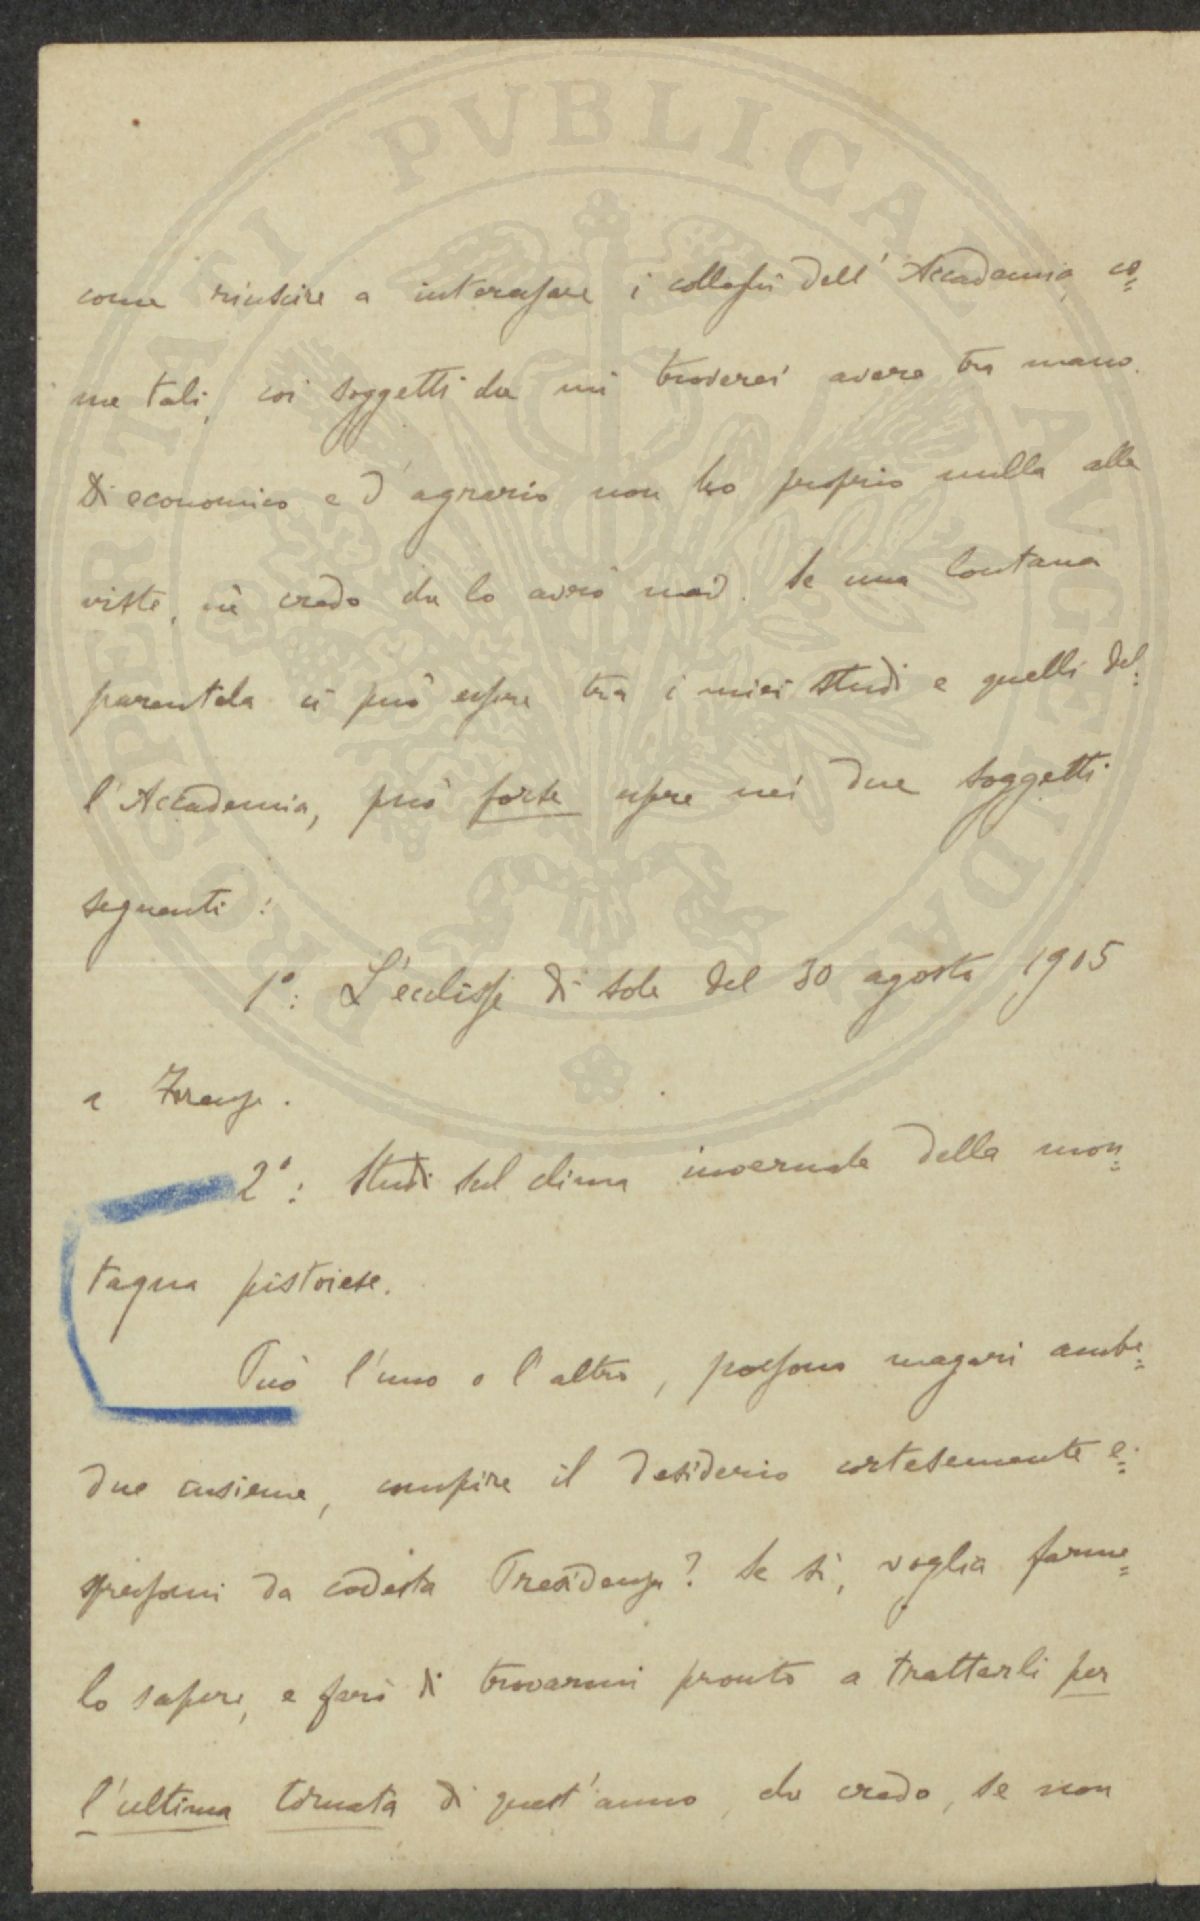 come riuscire a interessare i colleghi dell'Accademia, co=
me tali, coi soggetti che mi troverei avere tra mano.
Di economico e d'agrario non ho proprio nulla alle
viste, nè credo che lo avrò mai. Se una lontana
parentela ci può essere tra i miei studi e quelli del=
l'Accademia, può forse essere nei due soggetti
seguenti:
1º: L'eclisse di sole del 30 agosto 1905
a Firenze.
2º: Studi sul clima invernale della mon=
tagna pistoiese.
Può l'uno o l'altro, possono magari ambe=
due insieme, compire il desiderio cortesemente e=
spressomi da codesta Presidenza? Se sì, voglia farme=
lo sapere, e farò di trovarmi pronto a trattarli per
l'ultima tornata di quest'anno, che credo, se non
PROSPERITATI PVBLICAE AVGENDAE